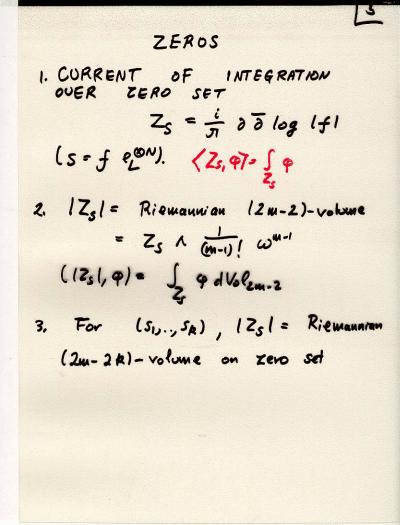 5
ZEROS
1. CURRENT OF INTEGRATION
OVER ZERO SET
Z_s = i/π ∂ ∂̄ log |f|
(s = f e_L^{⊗N}). ⟨Z_s, φ⟩ = ∫_{Z_s} φ
2. |Z_s| = Riemannian (2m-2)-volume
= Z_s ∧ 1/(m-1)! ω^{m-1}
(|Z_s|, φ) = ∫_{Z_s} φ dVol_{2m-2}
3. For (s_1,..,s_k), |Z_s| = Riemannian
(2m-2k)-volume on zero set